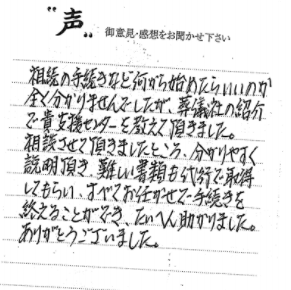 "声"
御意見・感想をお聞かせ下さい
相続の手続きなど何から始めたらいいのか
全く分かりませんでしたが、葬儀社の紹介
で貴支援センターを教えて頂きました。
相談させて頂きましたところ、分かりやすく
説明頂き、難しい書類も代行で取得
してもらい、すべてお任せで手続きを
終えることができ、たいへん助かりました。
ありがとうございました。